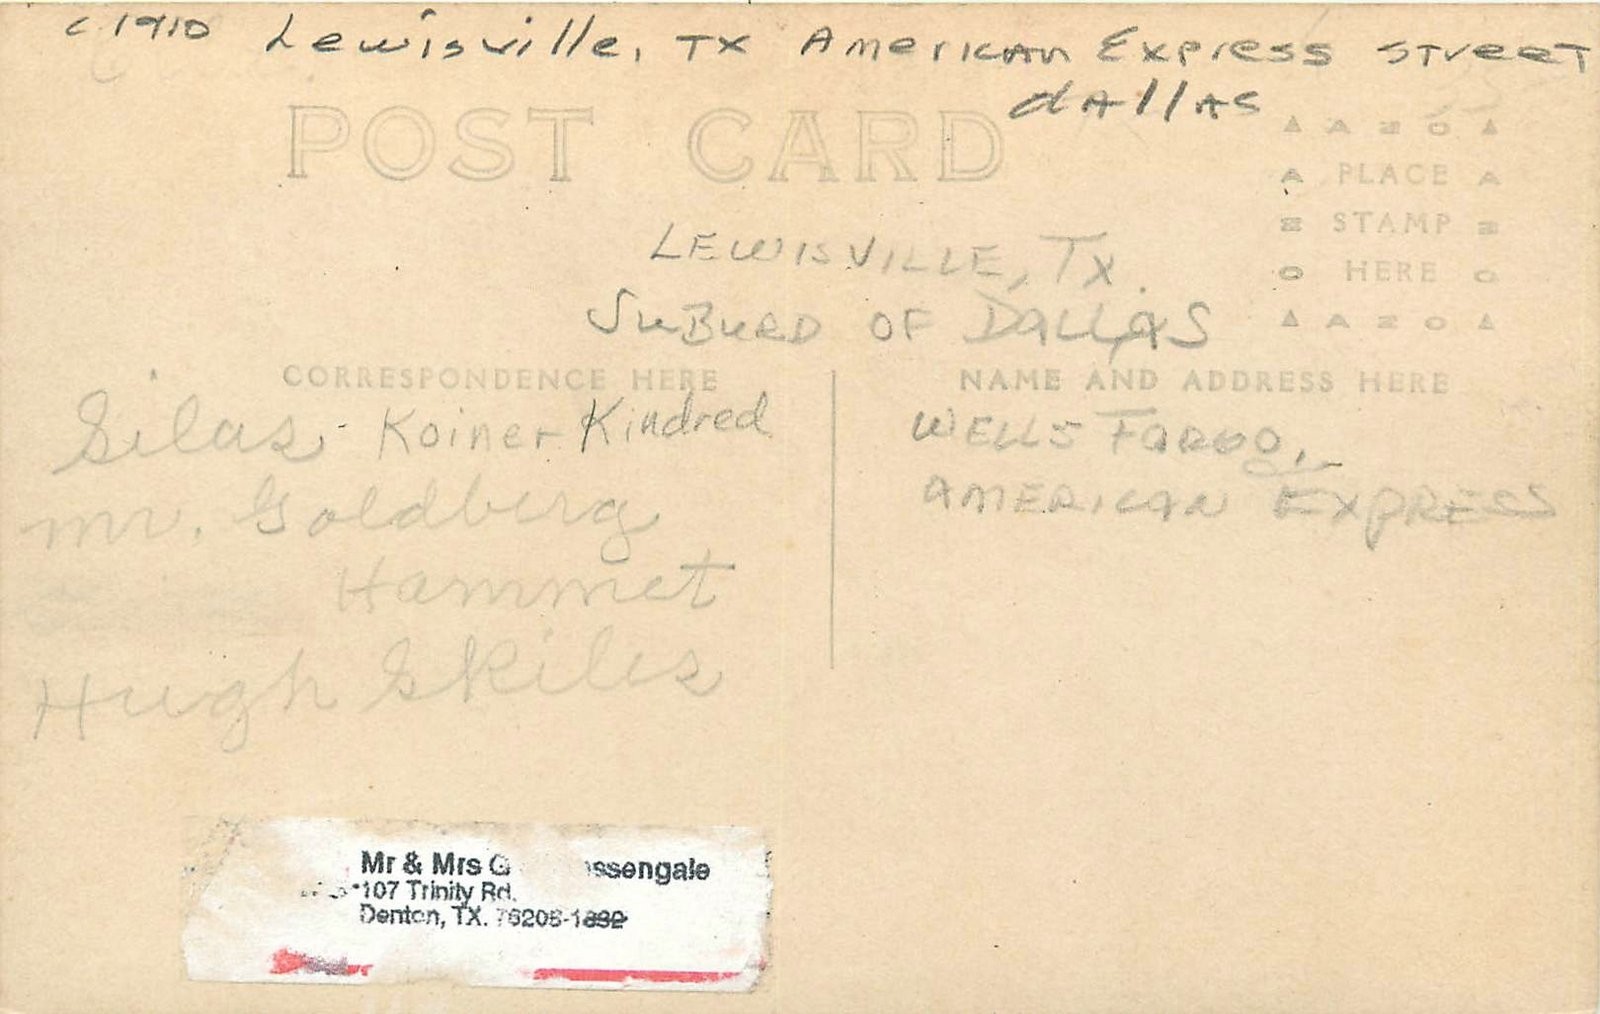 c 1910 Lewisville, TX American Express Street
dAllAs
POST CARD
AZO
PLACE
STAMP
HERE
AZO
LEWISVILLE, TX.
SuBURD OF DALLAS
CORRESPONDENCE HERE
NAME AND ADDRESS HERE
Silas - Koiner Kindred
Mr. Goldberg
Hammet
Hugh Skiles
WELLS FARGO,
AMERICAN EXPRESS
Mr & Mrs G ssengale
107 Trinity Rd.
Denton, TX.